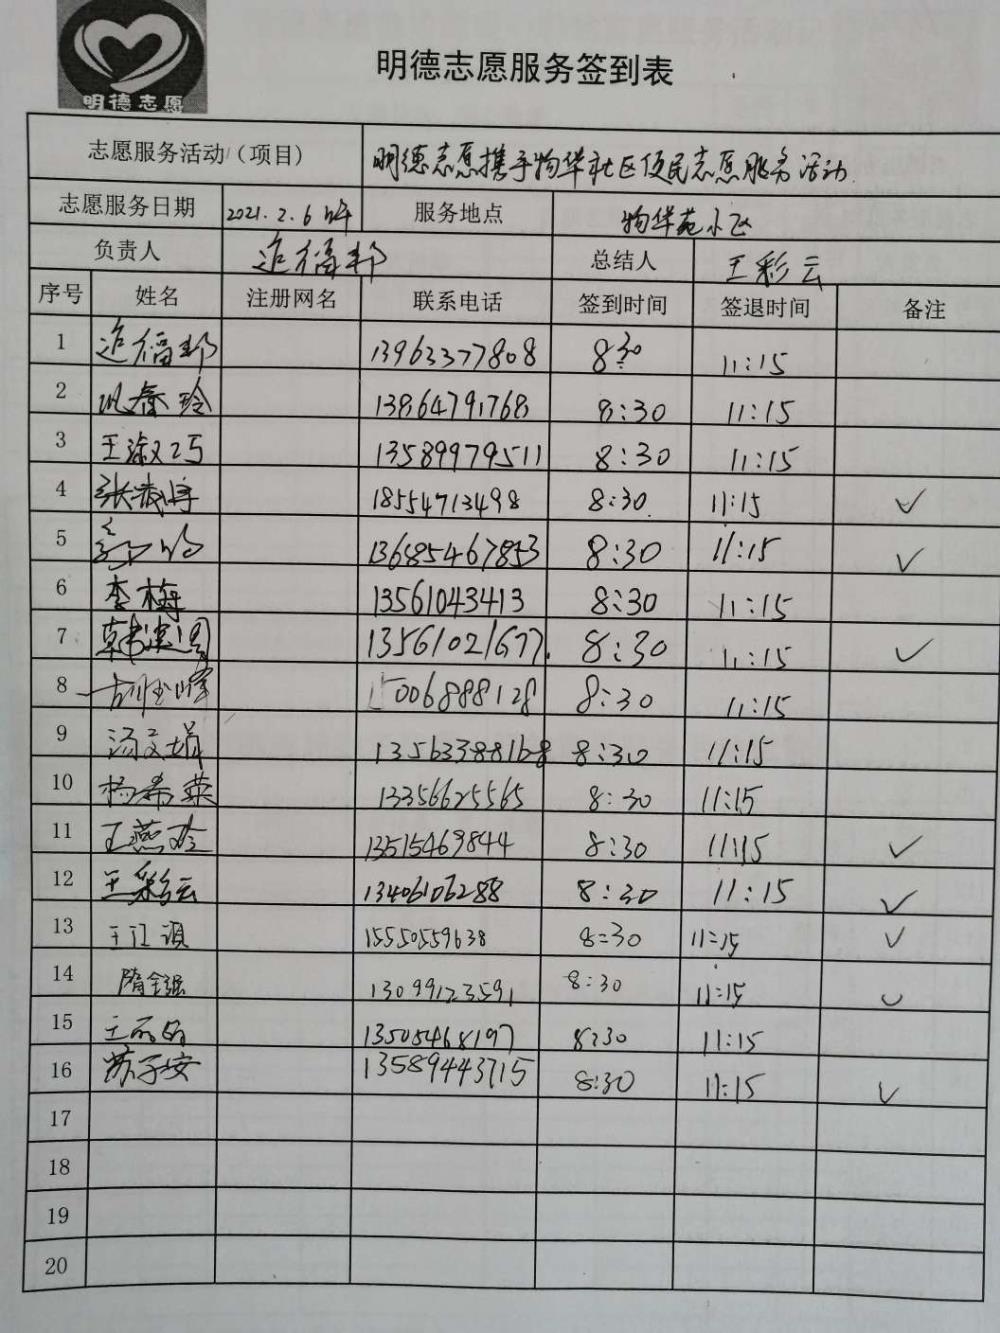 明德志愿
明德志愿服务签到表
志愿服务活动(项目) 明德志愿携手物华社区便民志愿服务活动.
志愿服务日期 2021.2.6 服务地点 物华苑小区
负责人 福邦 总结人 王彩云
序号 姓名 注册网名 联系电话 签到时间 签退时间 备注
1 福邦 13963377808 8:30 11:15
2 13864791768 8:30 11:15
3 王淑巧 13589979511 8:30 11:15
4 张 18554713498 8:30 11:15 ✓
5 13685467853 8:30 11:15 ✓
6 李梅 13561043413 8:30 11:15
7 韩建国 13561021677. 8:30 11:15 ✓
8 胡 15006888128 8:30 11:15
9 汤文娟 13563388168 8:30 11:15
10 杨希英 13356625565 8:30 11:15
11 王燕玲 13515469844 8:30 11:15 ✓
12 王彩云 13406106288 8:30 11:15 ✓
13 王 15550559638 8:30 11:15 ✓
14 隋全强 13099123591 8:30 11:15 ✓
15 王 13505468197 8:30 11:15
16 苏子安 13589443715 8:30 11:15 ✓
17
18
19
20